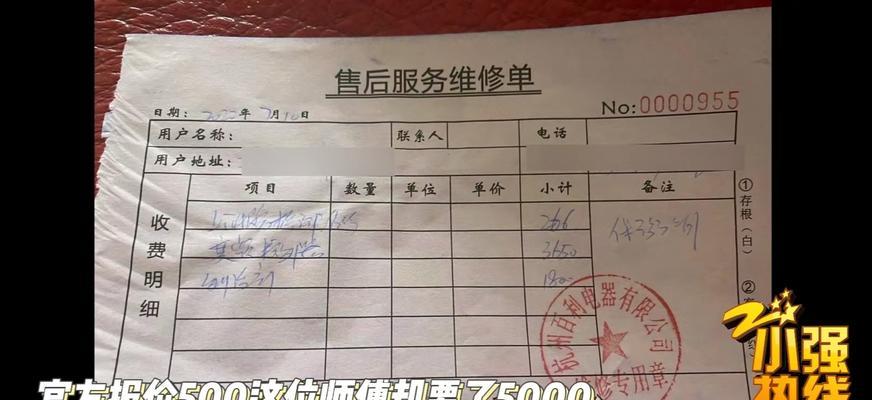 售后服务维修单
No:0000955
日期: 2022年7月10日
用户名称: 联系人 电话
用户地址:
项目 数量 单位 单价 小计 备注
收费明细
266
3650
制冷剂 1800
①存根(白)
②
杭州百利电器有限公司
维修专用章
官方报价500这位师傅却要了5000
小强热线